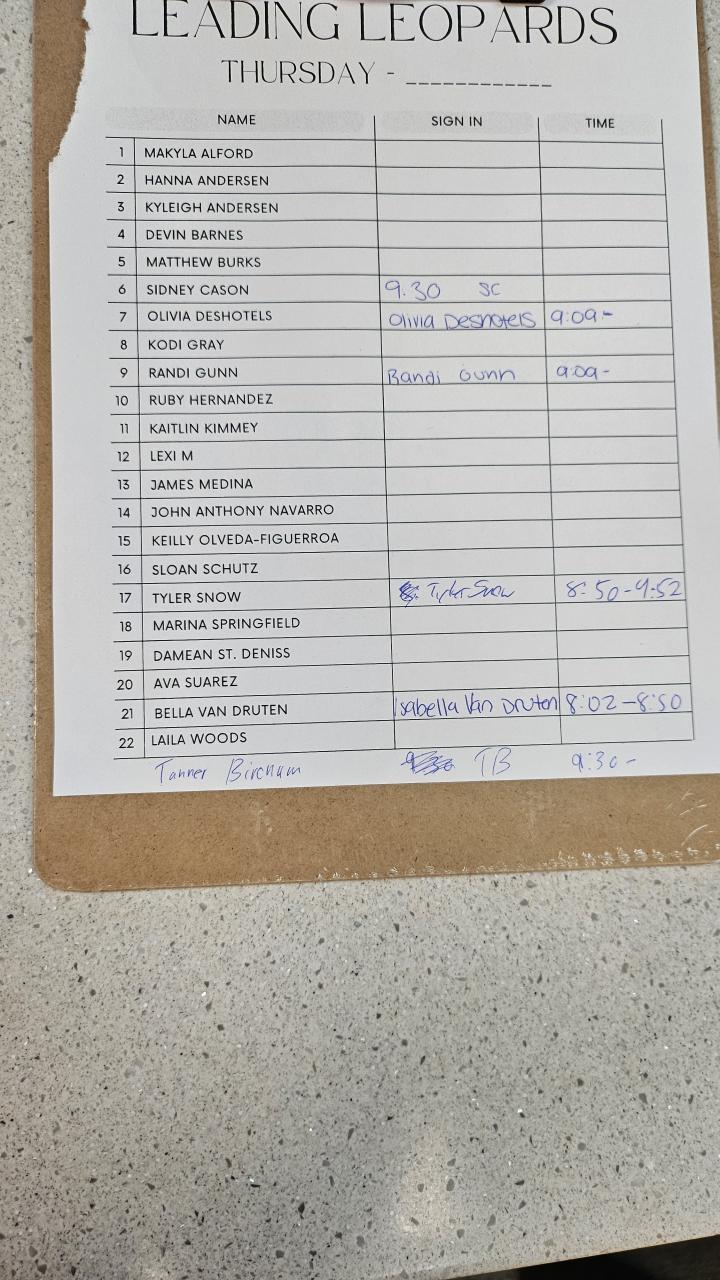 LEADING LEOPARDS
THURSDAY - ____________
NAME SIGN IN TIME
1 MAKYLA ALFORD
2 HANNA ANDERSEN
3 KYLEIGH ANDERSEN
4 DEVIN BARNES
5 MATTHEW BURKS
6 SIDNEY CASON 9:30 SC
7 OLIVIA DESHOTELS Olivia Deshotels 9:09-
8 KODI GRAY
9 RANDI GUNN Randi Gunn 9:09-
10 RUBY HERNANDEZ
11 KAITLIN KIMMEY
12 LEXI M
13 JAMES MEDINA
14 JOHN ANTHONY NAVARRO
15 KEILLY OLVEDA-FIGUERROA
16 SLOAN SCHUTZ
17 TYLER SNOW Tyler Snow 8:50-9:52
18 MARINA SPRINGFIELD
19 DAMEAN ST. DENISS
20 AVA SUAREZ
21 BELLA VAN DRUTEN Isabella Van Druten 8:02-8:50
22 LAILA WOODS
Tanner Birchum TB 9:30-